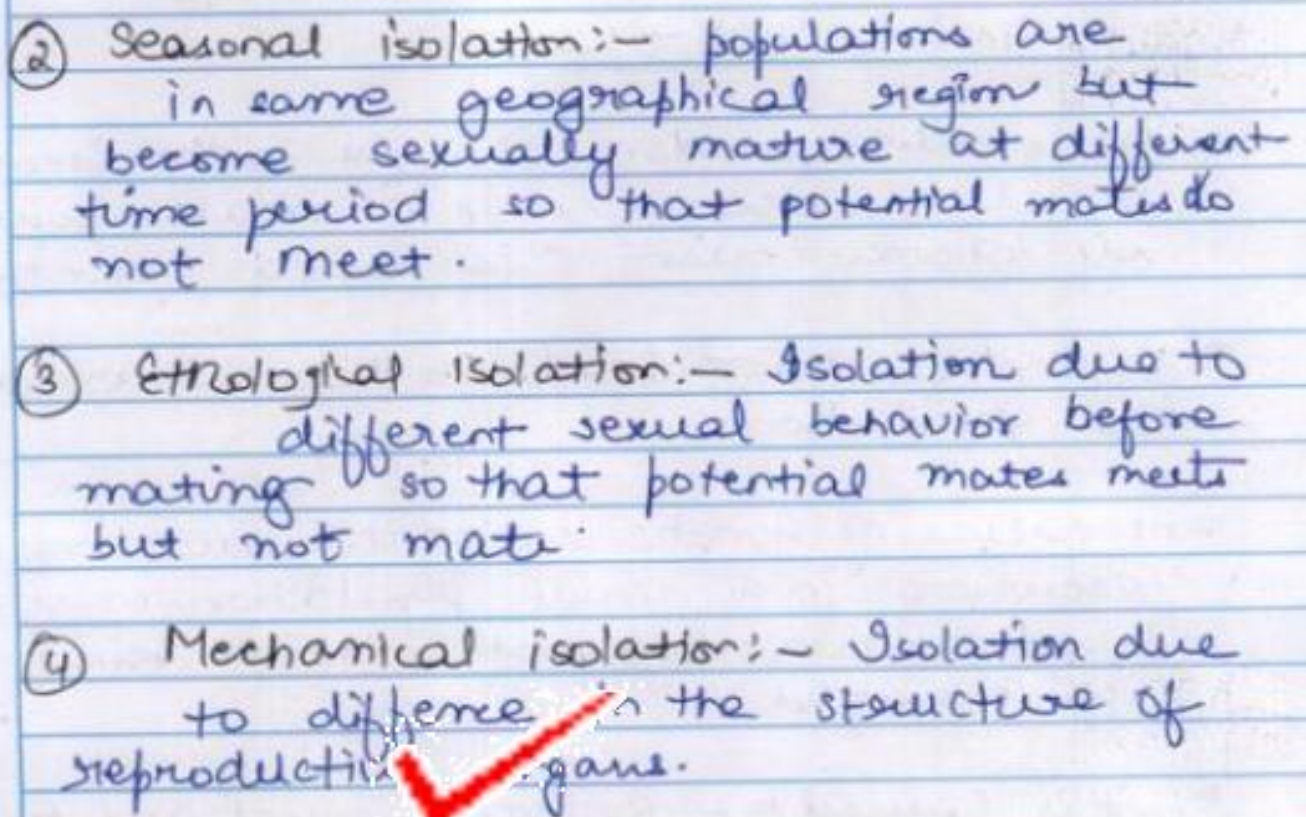 ② Seasonal isolation:- populations are
in same geographical region but
become sexually mature at different
time period so that potential mates do
not meet.
③ Ethological isolation:- Isolation due to
different sexual behavior before
mating so that potential mates meets
but not mate.
④ Mechanical isolation:- Isolation due
to diffence in the structure of
reproductive organs.